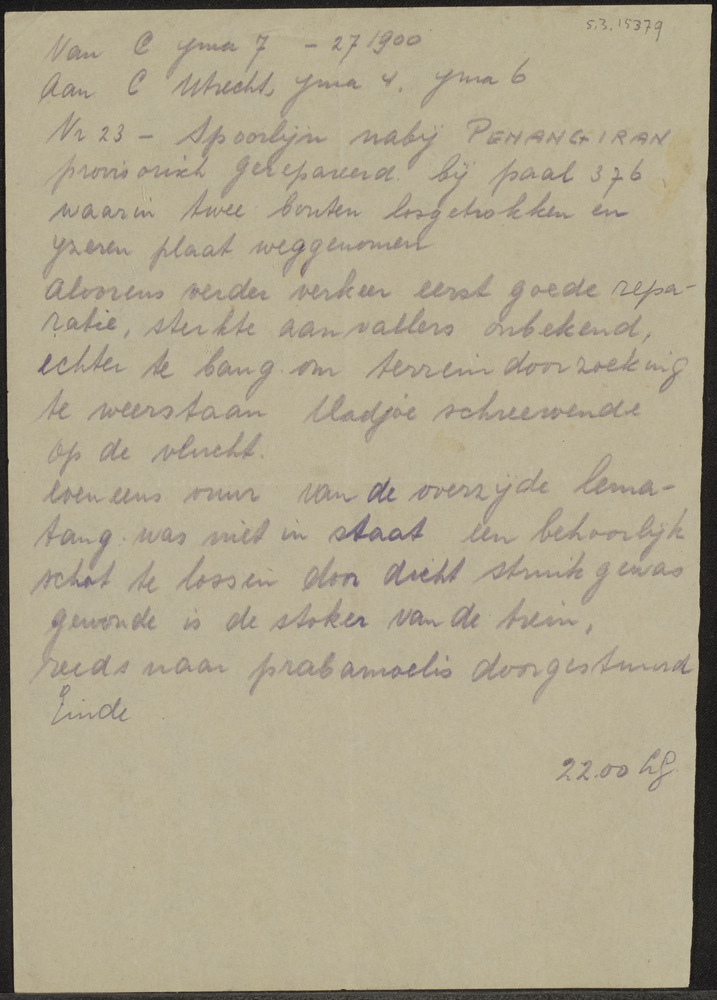 5.3.15379
Van C yma 7 - 27 1900
Aan C Utrecht, yma 4, yma 6
Nr 23 - Spoorlijn nabij PENANGGIRAN
provisorisch gerepareerd bij paal 376
waarin twee bouten losgetrokken en
yzeren plaat weggenomen
alvorens verder verkeer eerst goede repa-
ratie, sterkte aanvallers onbekend,
echter te bang om terreindoorzoeking
te weerstaan Madjoe schreewende
op de vlucht.
eveneens vuur van de overzijde lema-
tang was niet in staat een behoorlijk
schot te lossen door dicht struikgewas
gewonde is de stoker van de trein,
reeds naar prabamoelis doorgestuurd
Einde
22.00